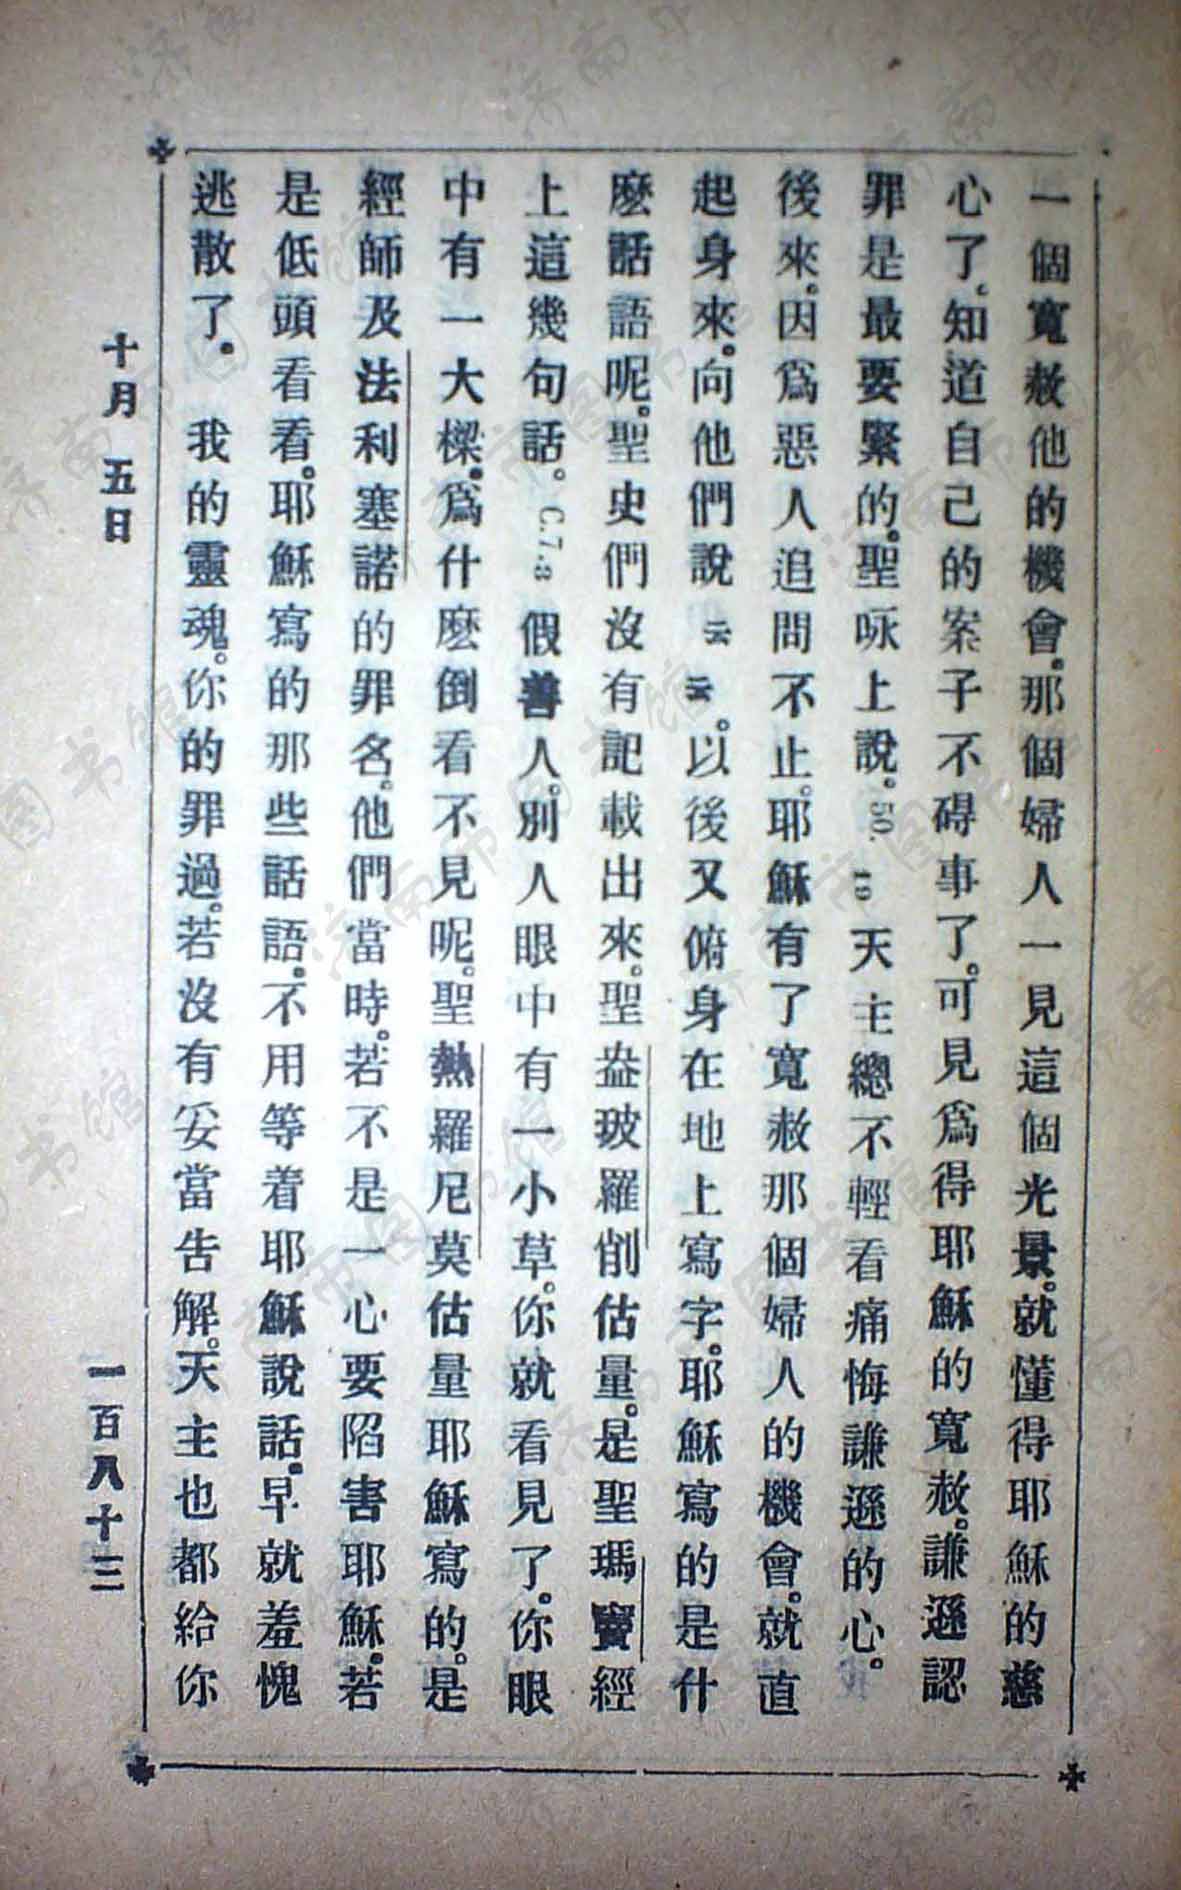 一個寬赦他的機會。那個婦人一見這個光景。就懂得耶穌的慈
心了。知道自己的案子不碍事了。可見爲得耶穌的寬赦。謙遜認
罪是最要緊的。聖咏上說。50. 19 天主總不輕看痛悔謙遜的心。
後來。因爲惡人追問不止。耶穌有了寬赦那個婦人的機會。就直
起身來。向他們說 。以後又俯身在地上寫字。耶穌寫的是什
麽話語呢。聖史們沒有記載出來。聖盎玻羅削估量。是聖瑪竇經
上這幾句話。C.7.3 假善人。別人眼中有一小草。你就看見了。你眼
中有一大樑。爲什麽倒看不見呢。聖熱羅尼莫估量耶穌寫的。是
經師及法利塞諾的罪名。他們當時。若不是一心要陷害耶穌。若
是低頭看看。耶穌寫的那些話語。不用等着耶穌說話。早就羞愧
逃散了。 我的靈魂。你的罪過。若沒有妥當告解。天主也都給你
十月 五日
一百八十三
济南市图书馆